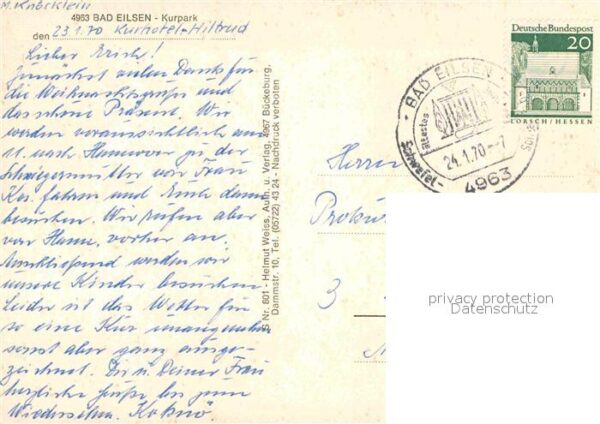 4963 BAD EILSEN - Kurpark
den 23.1.70 Kurhotel-Hiltrud
Lieber Erich!
zunächst vielen Dank für
die Weihnachtsgrüße und
das schöne Präsent. Wir
werden voraussichtlich am
11. nach Hannover zu der
Schwiegermutter von Frau
fahren und Euch dann
besuchen. Wir rufen aber
von Hann. vorher an.
Anschließend werden wir
unsere Kinder besuchen.
Leider ist das Wetter für
so eine Kur unangenehm
sonst aber ganz ausge-
zeichnet. Dir u. Deiner Frau
herzliche Grüße bis zum
Wiedersehen.
S Nr. 801 - Helmut Weiss, Aufn. u. Verlag, 4967 Bückeburg,
Dammstr. 10, Tel. (05722) 43 24 - Nachdruck verboten
BAD EILSEN
24.1.70-7
4963
Deutsche Bundespost
20
LORSCH/HESSEN
Herrn
Proku
3
privacy protection
Datenschutz